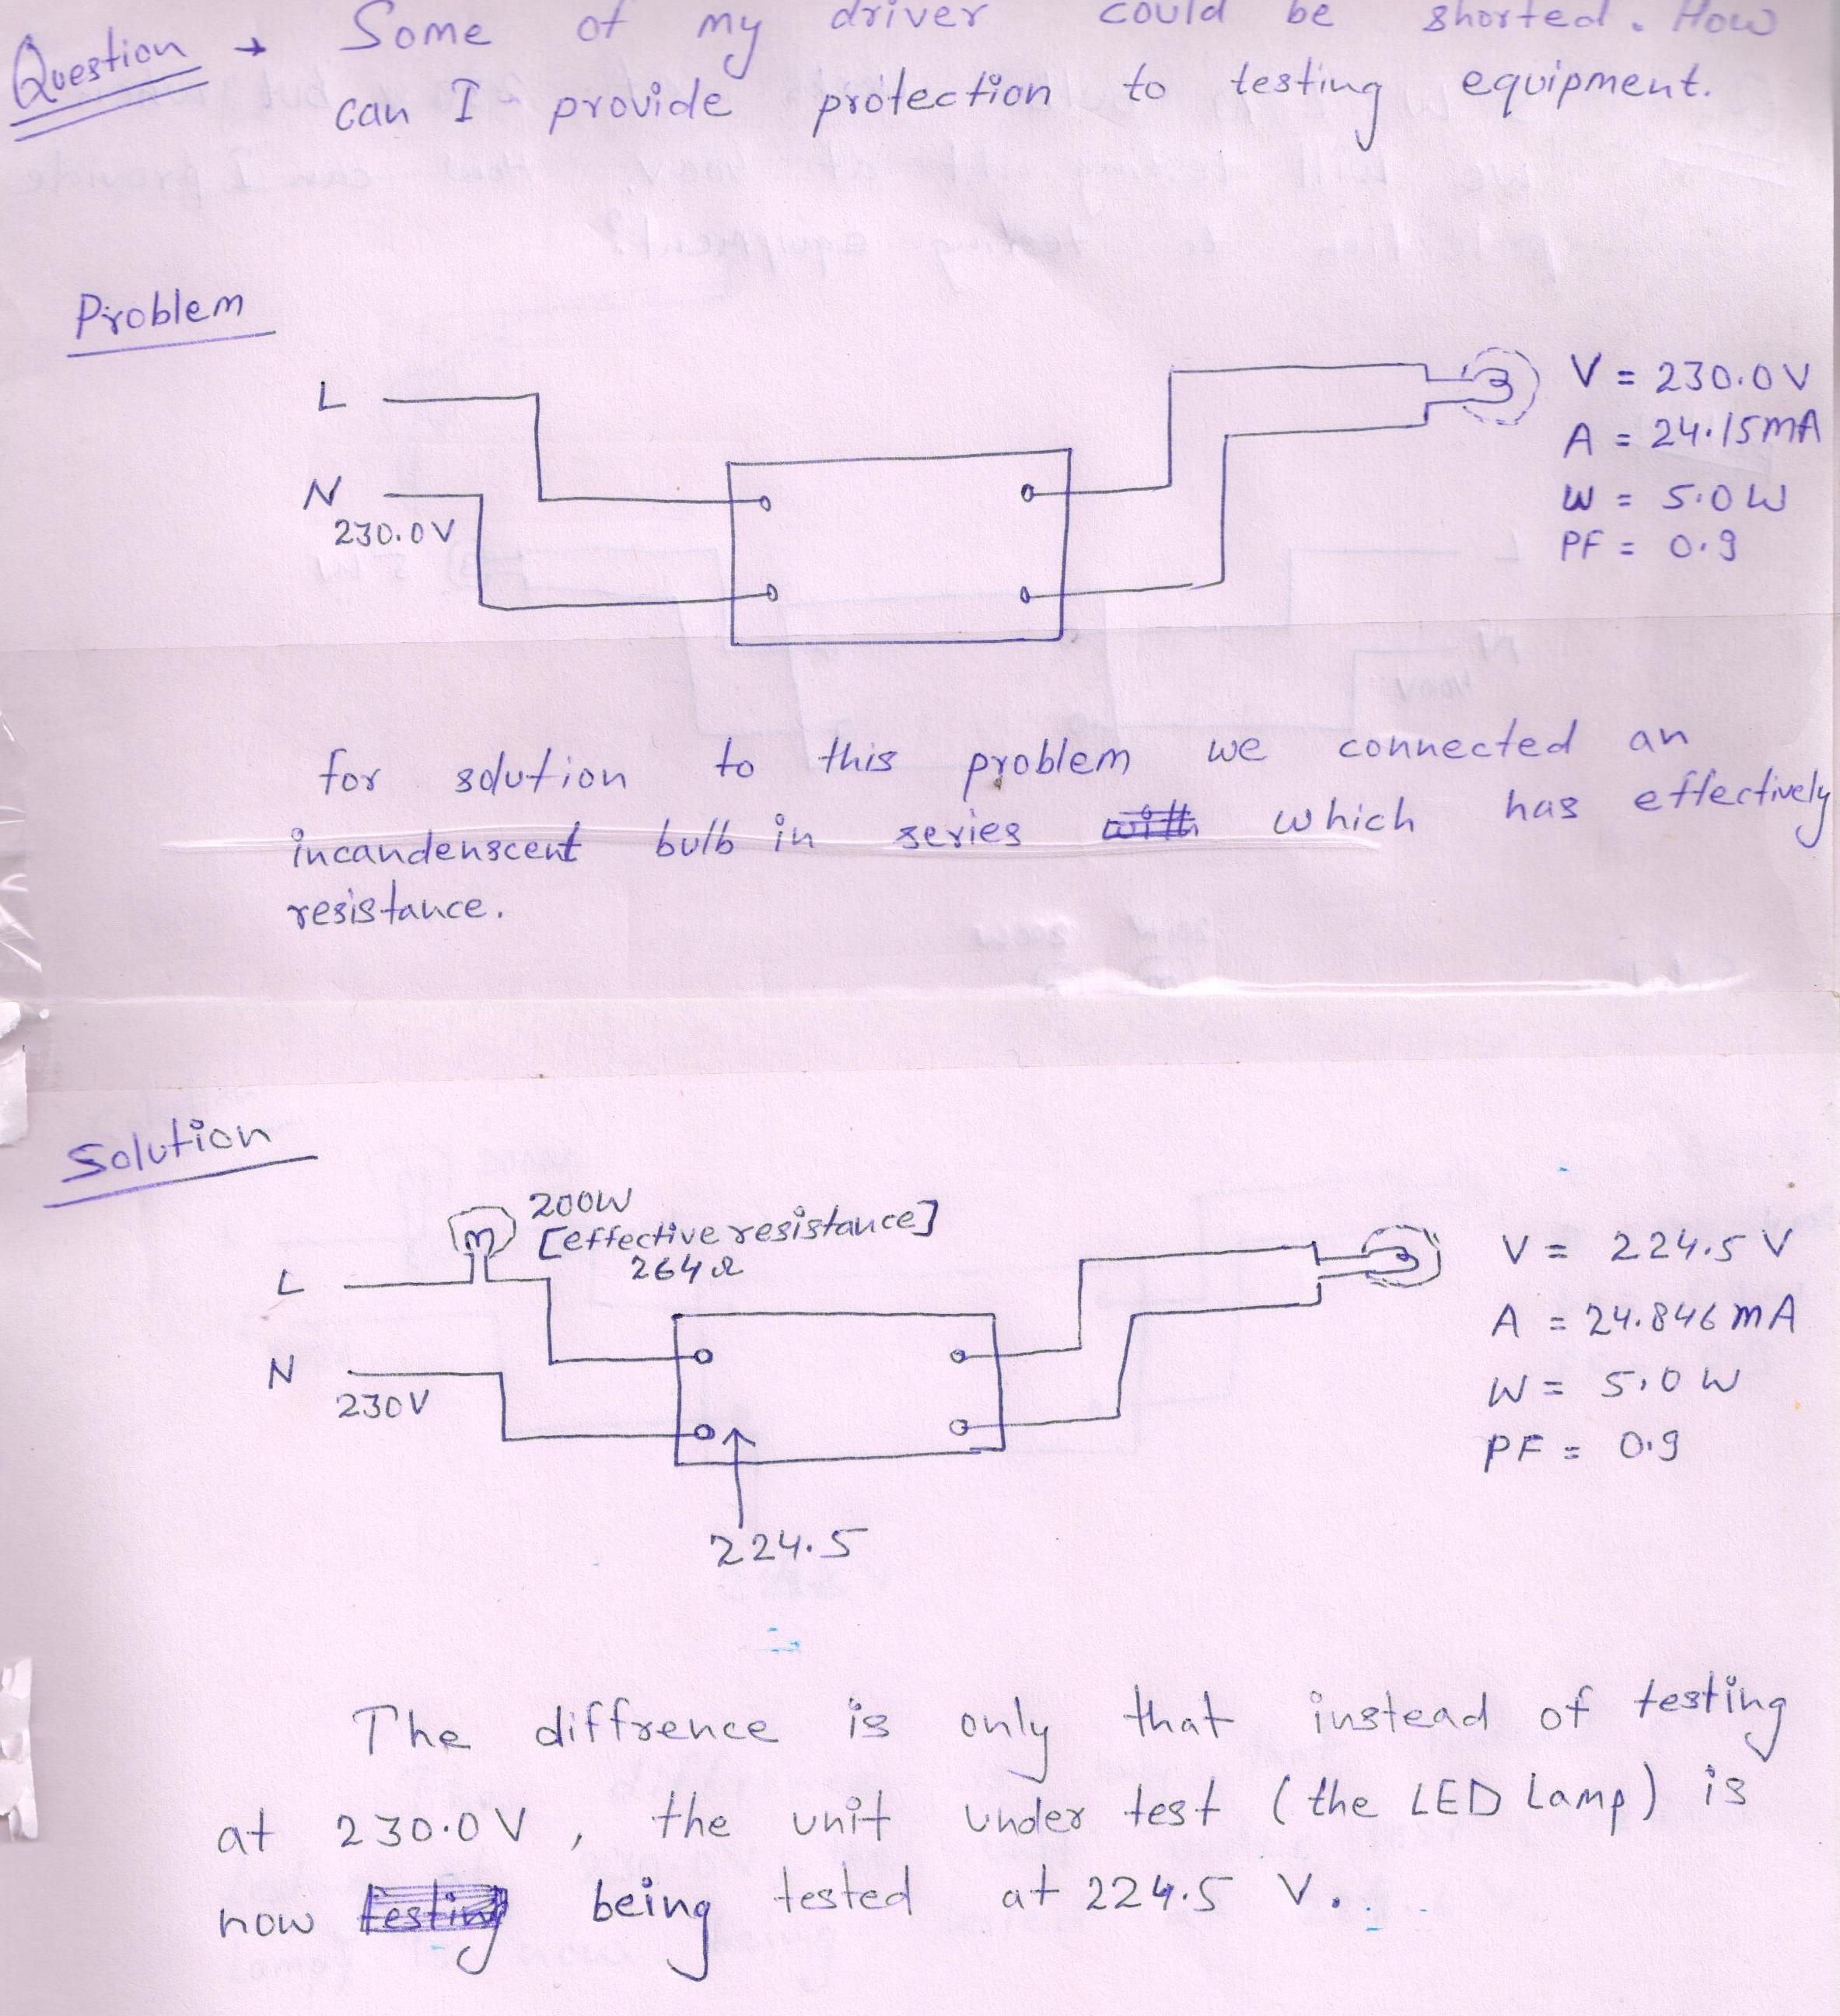 Question → Some of my driver could be shorted. How
can I provide protection to testing equipment.
Problem
L
N
230.0V
V = 230.0V
A = 24.15mA
W = 5.0W
PF = 0.9
for solution to this problem we connected an
incandenscent bulb in series with which has effectively
resistance.
Solution
200W
[effective resistance]
264Ω
L
N
230V
224.5
V = 224.5V
A = 24.846mA
W = 5.0W
PF = 0.9
The diffrence is only that instead of testing
at 230.0V, the unit under test (the LED Lamp) is
now testing being tested at 224.5 V.